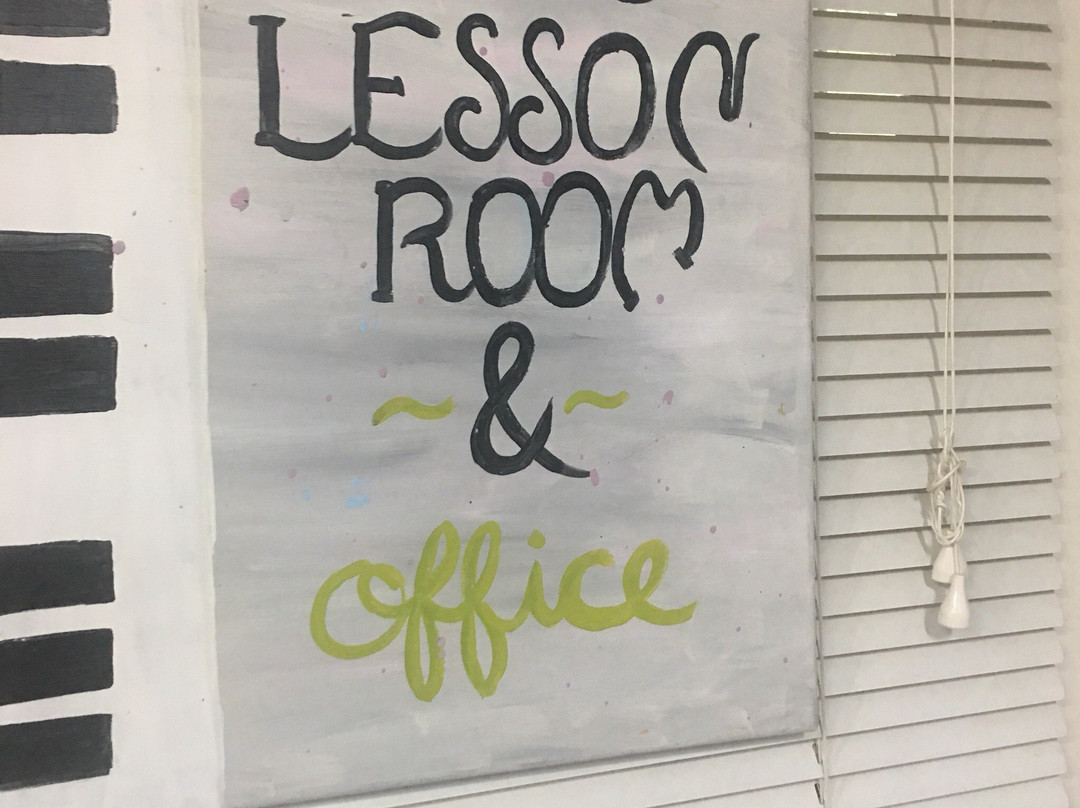 LESSON
ROOM
~ & ~
office